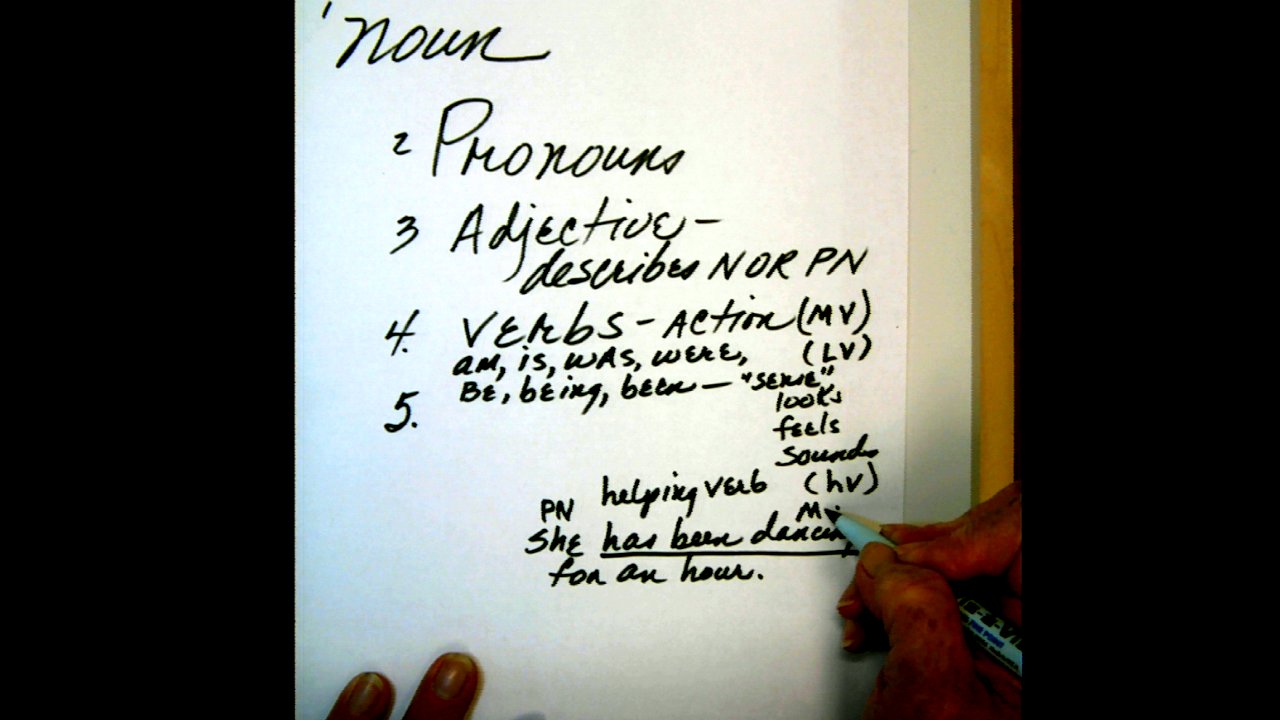 1 noun
2 Pronouns
3 Adjective -
describes N OR PN
4. VERbS - ACTION (MV)
AM, is, WAS, WERE, (LV)
BE, being, been - "SENSE"
looks
5.
feels
sounds
helping VErb (hV)
PN M
ShE has been dancing
for an hour.